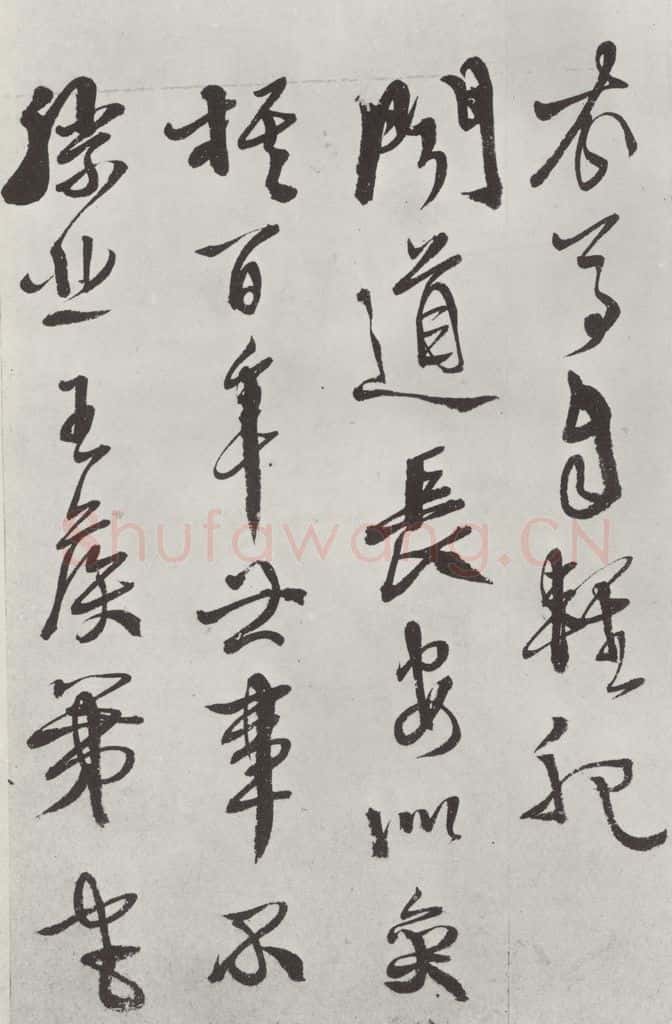 衣馬自輕肥
聞道長安似奕
棋百年世事不
勝悲王侯第宅
Shufawang.CN